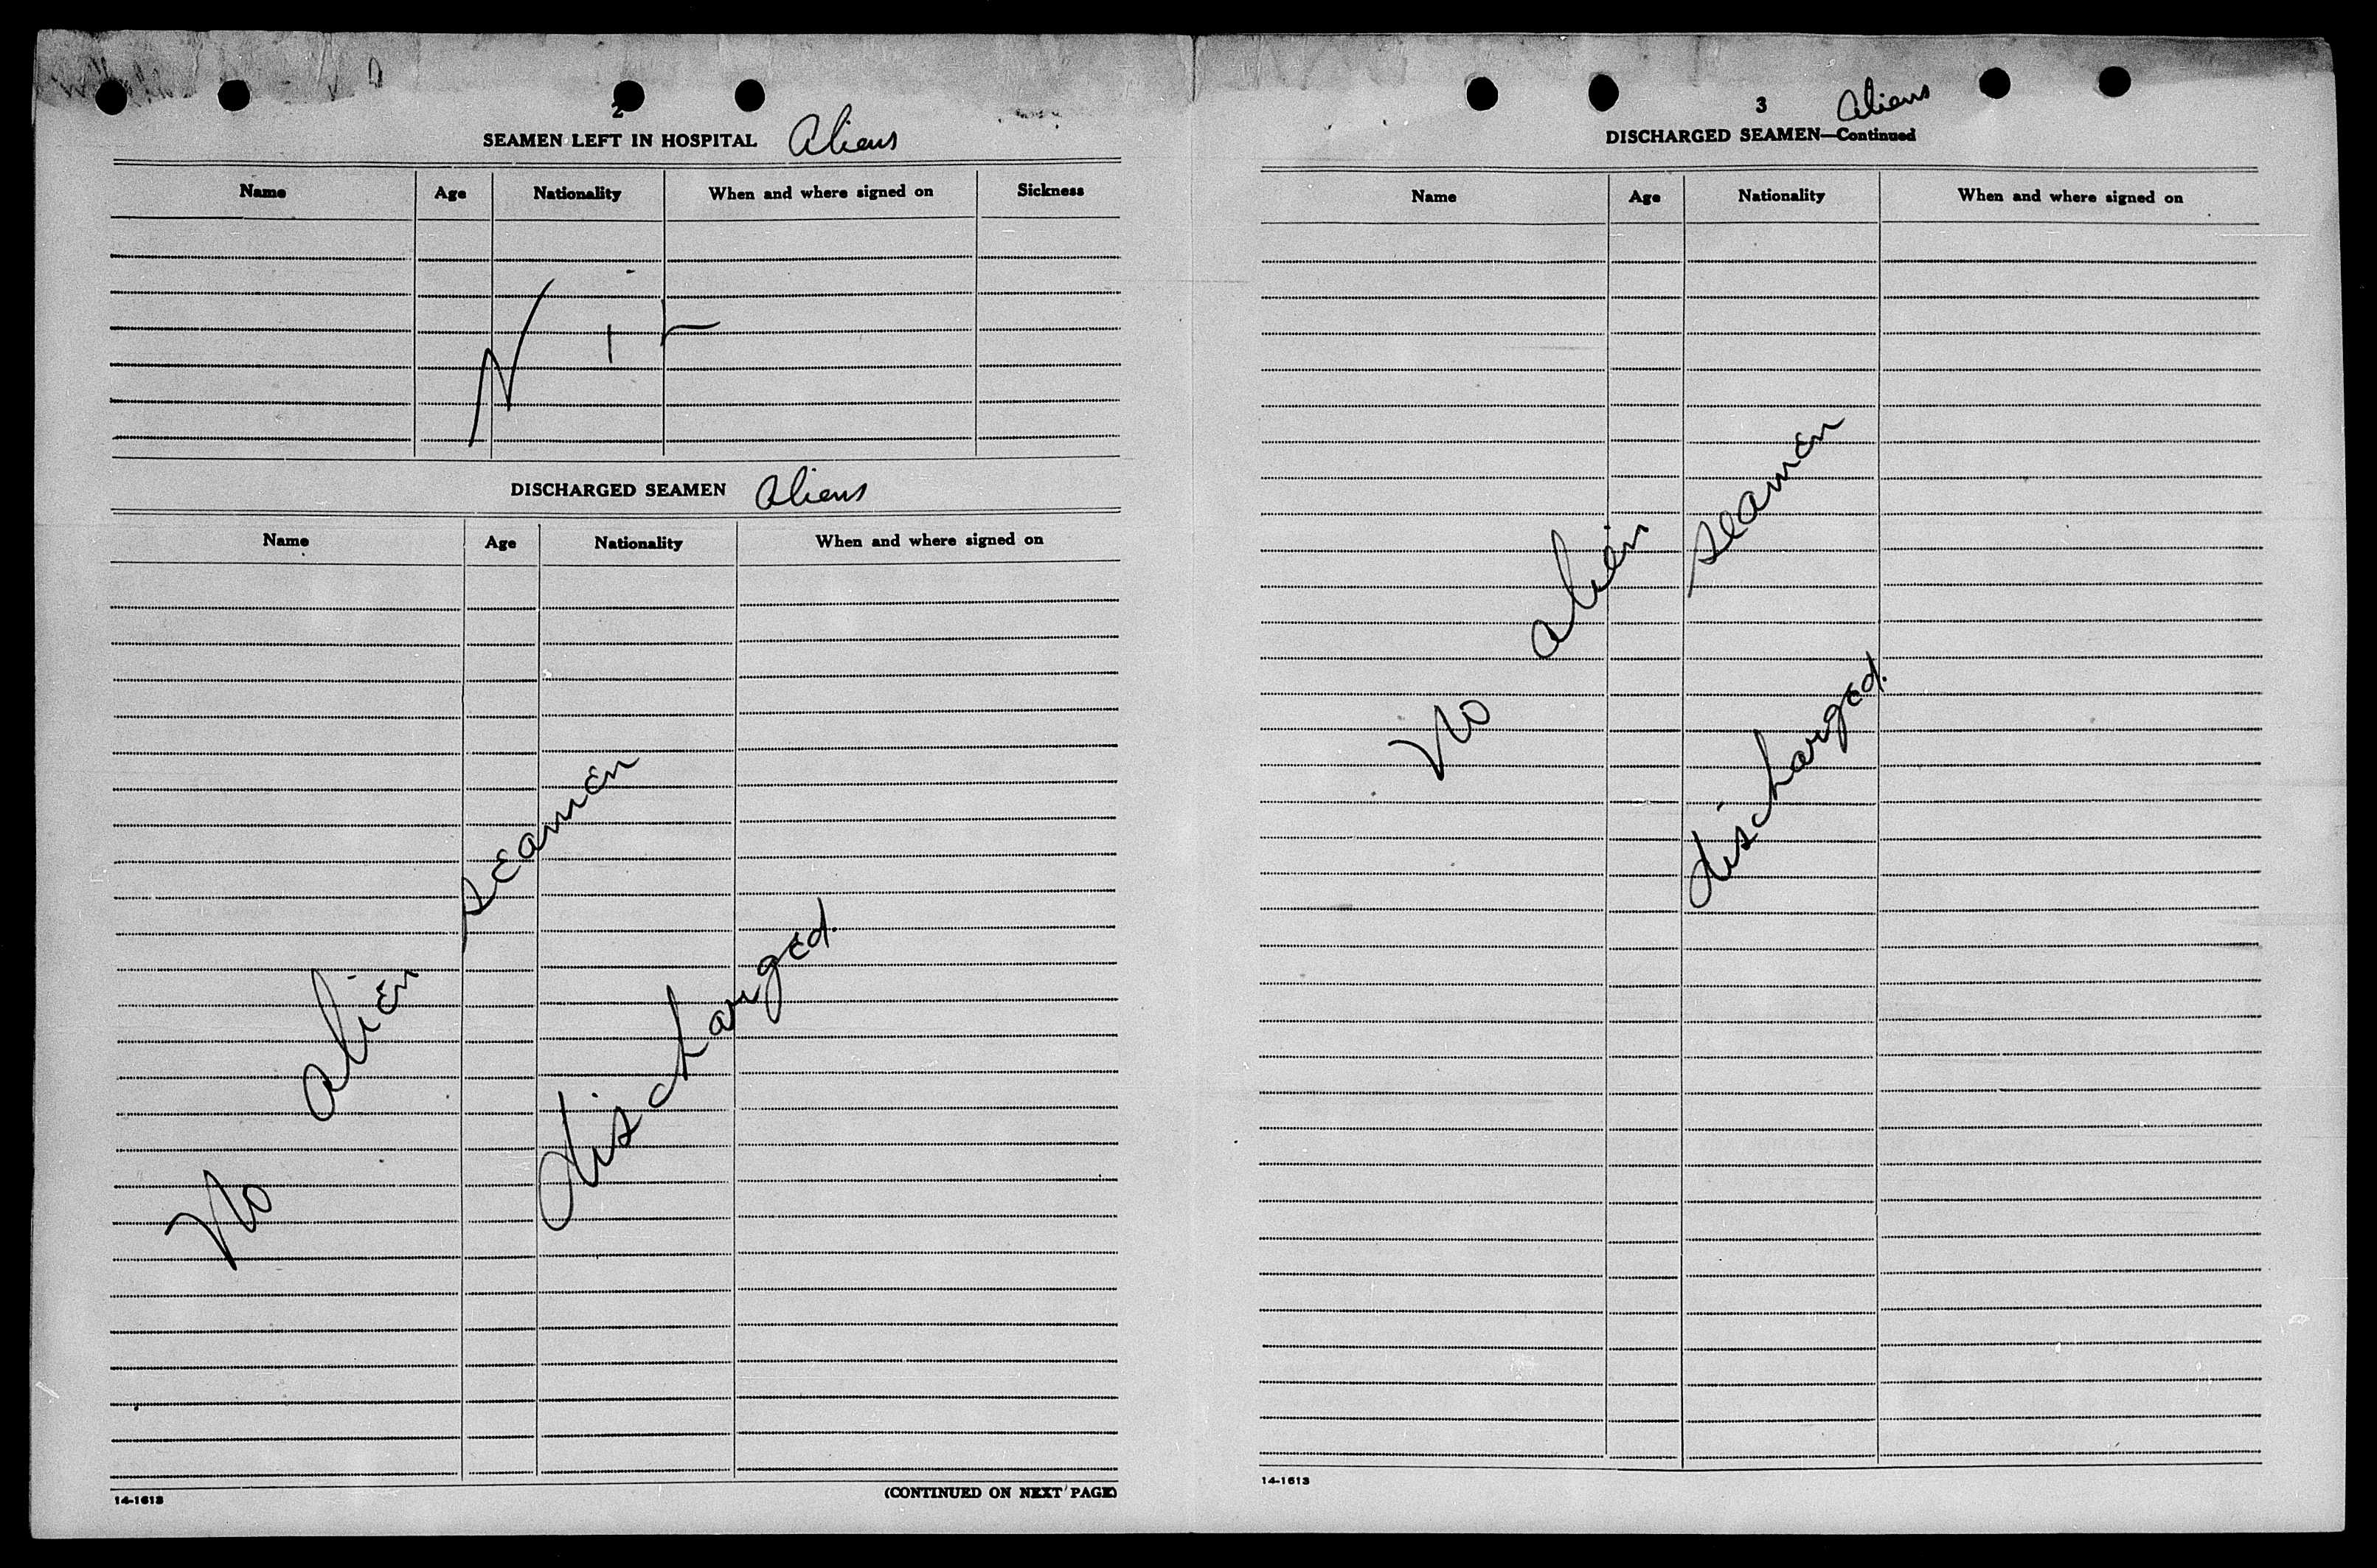 2
SEAMEN LEFT IN HOSPITAL Aliens
Name Age Nationality When and where signed on Sickness
DISCHARGED SEAMEN Aliens
Name Age Nationality When and where signed on
No alien seamen
discharged.
14-1613 (CONTINUED ON NEXT PAGE)
3 Aliens
DISCHARGED SEAMEN—Continued
Name Age Nationality When and where signed on
No alien seamen
discharged.
14-1613